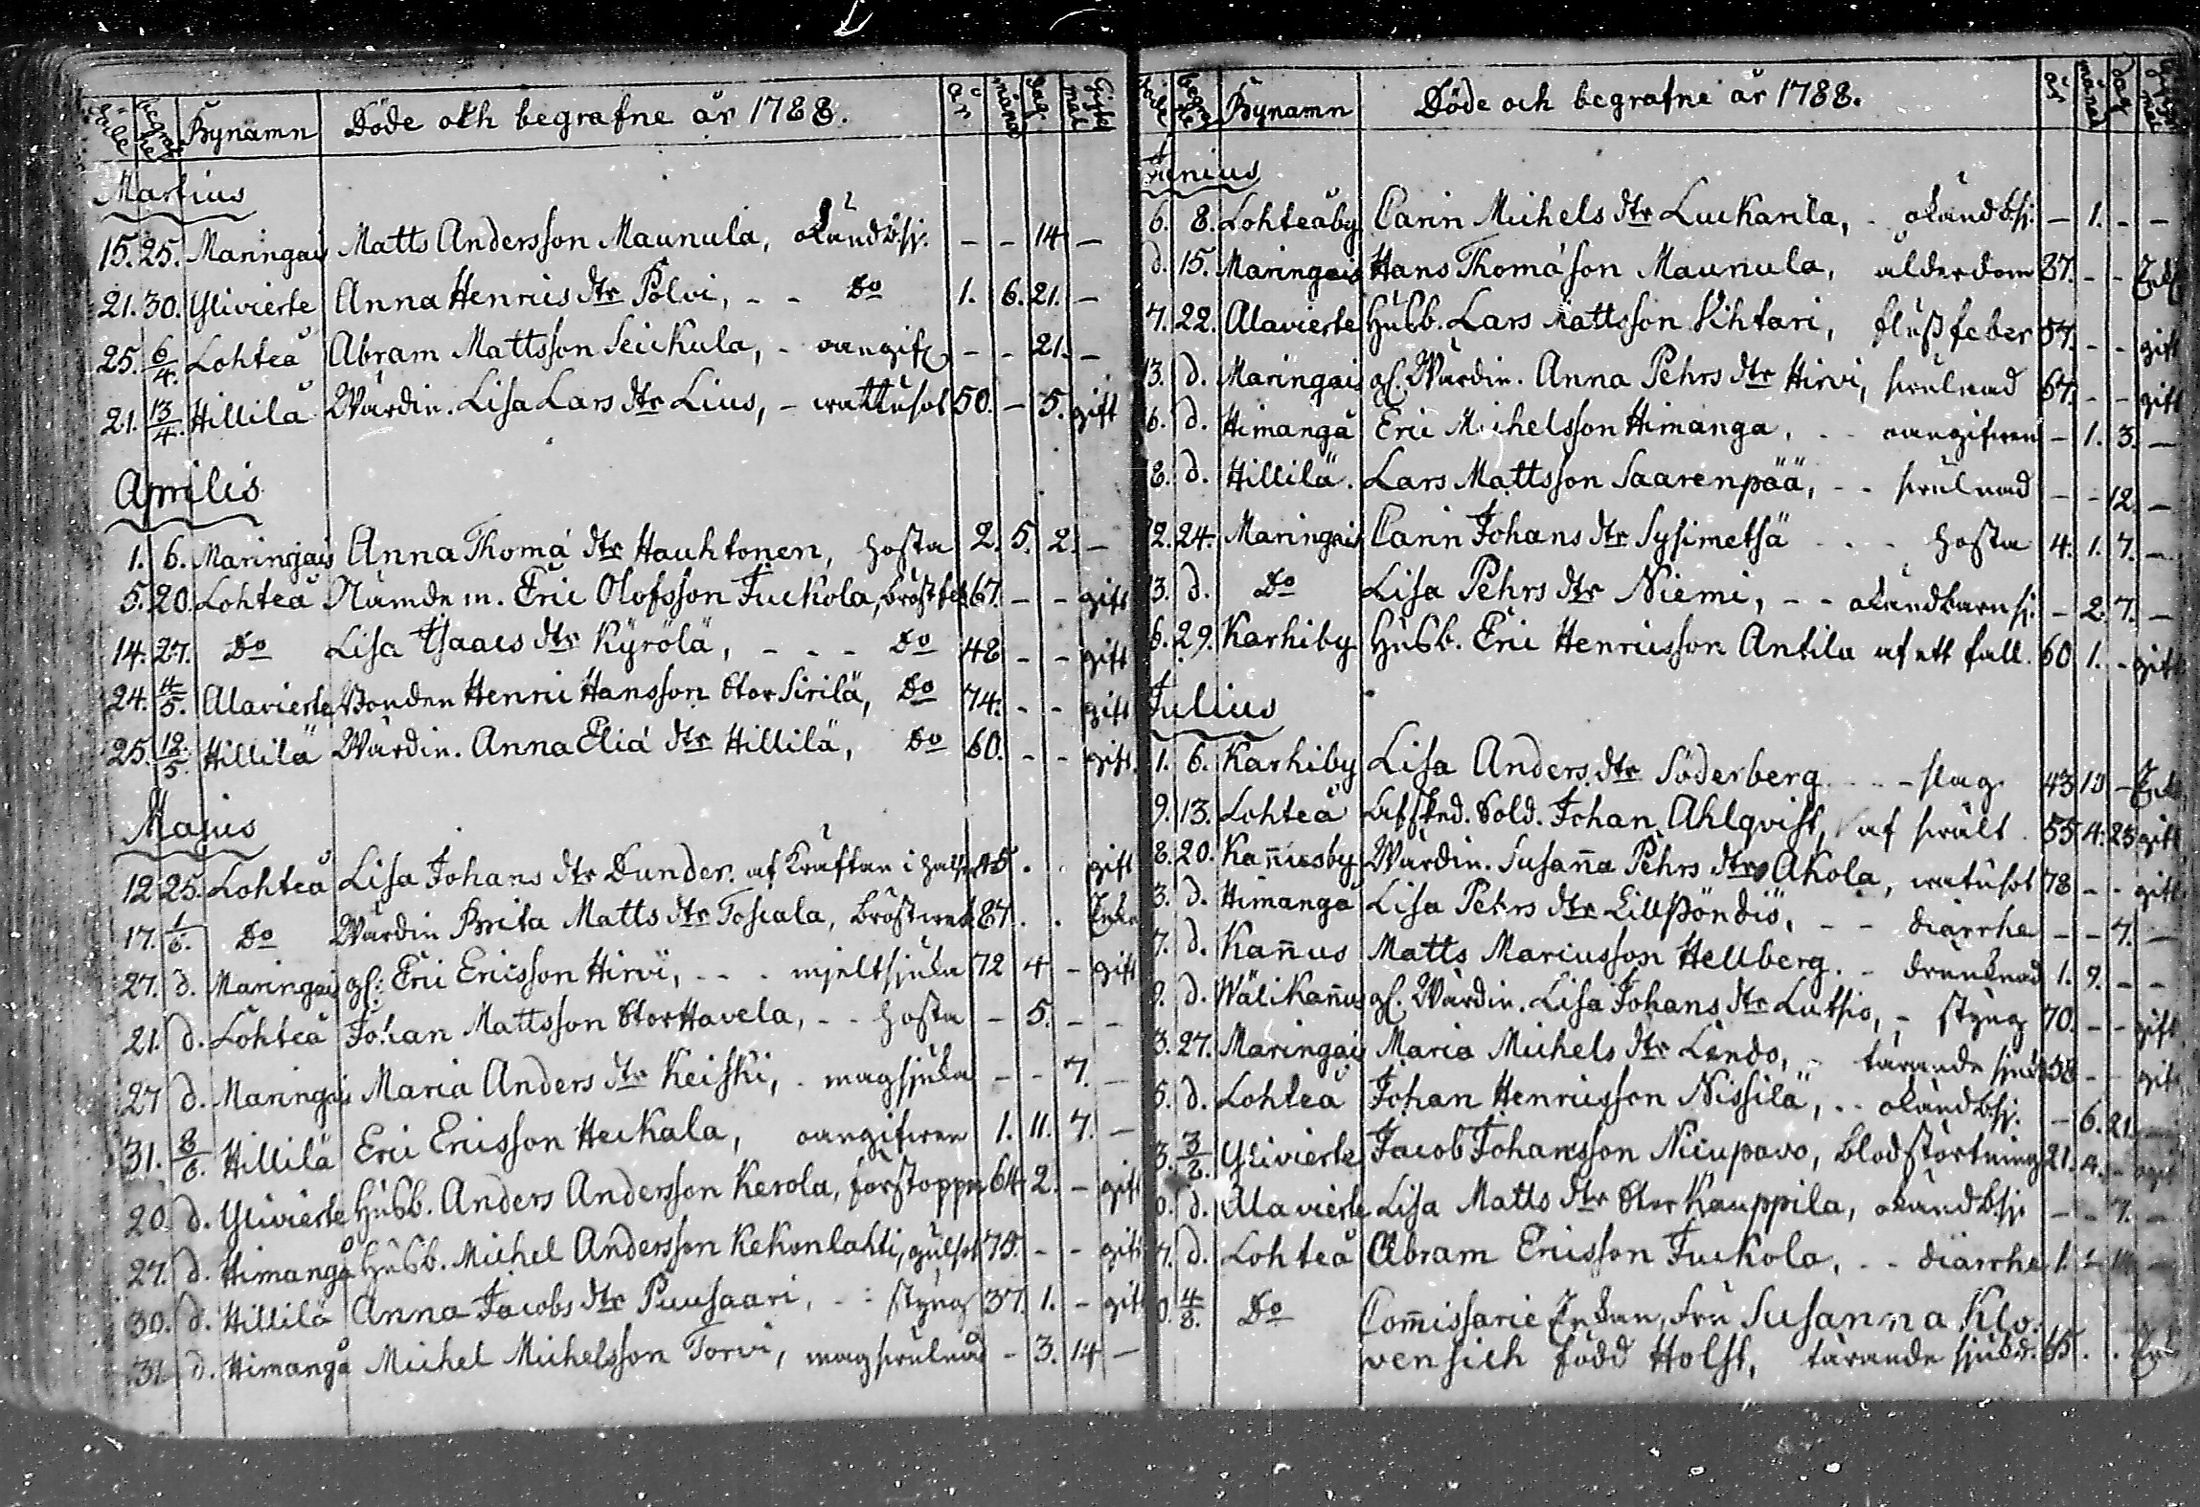 Döde begrafne Bynamn Döde och begrafne år 1788. år månad dag Gift mål
Martius
15. 25. Maringais Matts Andersson Maunula, okänd bsj. - - 14 -
21. 30. Ylivierte Anna Henrics dtr Pölvi, - - Do 1. 6. 21. -
25. 6/4. Lohteå Abram Mattsson Seickula, - oangif. - - 21. -
21. 13/4. Hillilä Wärdin. Lisa Lars dtr Lius, - wattusot 50. - 5. gift
Aprilis
1. 6. Maringais Anna Thomæ dtr Hauhtonen, hosta 2. 5. 2. -
5. 20. Lohteå Nämdem. Eric Olofsson Juckola, bröstfeb 67. - - gift
14. 27. Do Lisa Isaacs dtr Kyrölä, - - - Do 48 - - gift
24. 4/5. Alavierte Bonden Henric Hansson Stor Sirilä, Do 74. - - gift
25. 12/5. Hillilä Wärdin. Anna Eliæ dtr Hillilä, Do 60. - - gift.
Majus
12 25. Lohteå Lisa Johans dtr Dunder. af kräftan i halsen 45 . . gift
17. 1/6. Do Wärdin Brita Matts dtr Toscala, bröstwerk 87. . . Enka
27. d. Maringais gl: Eric Ericsson Hirvi, - - - mjeltsjuka 72 4 - gift
21. d. Lohteå Johan Mattsson Stor Havela, - - hosta - 5. - -
27 d. Maringais Maria Anders dtr Keiski, - magsjuka - - 7. -
31. 8/6. Hillilä Eric Ericsson Heckala, oangifwen 1. 11. 7. -
20. d. Ylivierte Husb. Anders Andersson Kerola, förstoppn 64. 2. - gift
27. d. Himangå Husb. Michel Andersson Kekonlahti, gulsot 75. - - gift
30. d. Hillilä Anna Jacobs dtr Puusaari, - - styng 37. 1. - gift
31 d. Himangå Michel Michelsson Torvi, mag - 3. 14 -
begrafne Bynamn Döde och begrafne år 1788. år månad dag
Junius
6. 8. Lohteåby Carin Michels dtr Luckarila, - okänd bsj. - 1. - -
d. 15. Maringais Hans Thomæson Maunula, ålderdom 87. - - Enkl
7. 22. Alavierte Husb. Lars Mattsson Vihtari, flussfeber 57. - - gift
13. d. Maringais gl. Wärdin. Anna Pehrs dtr Hirvi, swulnad 67. - - gift
16. d. Himangå Eric Michelsson Himanga, - - oangifwen - 1. 3. -
8. d. Hillilä. Lars Mattsson Saarenpää, - - swulnad - - 12. -
2. 24. Maringais Carin Johans dtr Sysimetsä - - - hosta 4. 1. 7. -
3. d. Do Lisa Pehrs dtr Niemi, - - okänd barnsj. - 2. 7. -
6. 29. Karhiby Husb. Eric Henricsson Antila af ett fall. 60 1. - gift
Julius
1. 6. Karhiby Lisa Anders dtr Söderberg - - - slag. 43 10 - Enk.
9. 13. Lohteå Afsked. Sold. Johan Ahlqvist, af swält. 55 4. 25 gift
8. 20. Kan̄usby Wärdin. Susan̄a Pehrs dtr Akola, watusot 78 - - gift
3. d. Himangå Lisa Pehrs dtr Lillpöndiö, - - diarrhe - - 7. -
7. d. Kan̄us Matts Mariusson Hellberg. - drunknad 1. 9. - -
9. d. Wälikan̄us gl. Wärdin. Lisa Johans dtr Lutsio, - styng 70. - - gift
3. 27. Maringais Maria Michels dtr Lindo, - tärande sjukd 58 - - gift
5. d. Lohteå Johan Henricsson Nissilä, - - okänd bsj. - 6. 21. -
3. 3/8. Ylivierte Jacob Johansson Nicupavo, blodstörtning 21. 4. - ogift
0. d. Alavierte Lisa Matts dtr Stor Kauppila, okänd bsj - - 7. -
7. d. Lohteå Abram Ericsson Juckola, - - diarrhe 1.
0. 4/8. Do Com̄issarie Enkan, Fru Susanna Klo-
wensich född Holst, tärande sjukd. 65 . . Enk